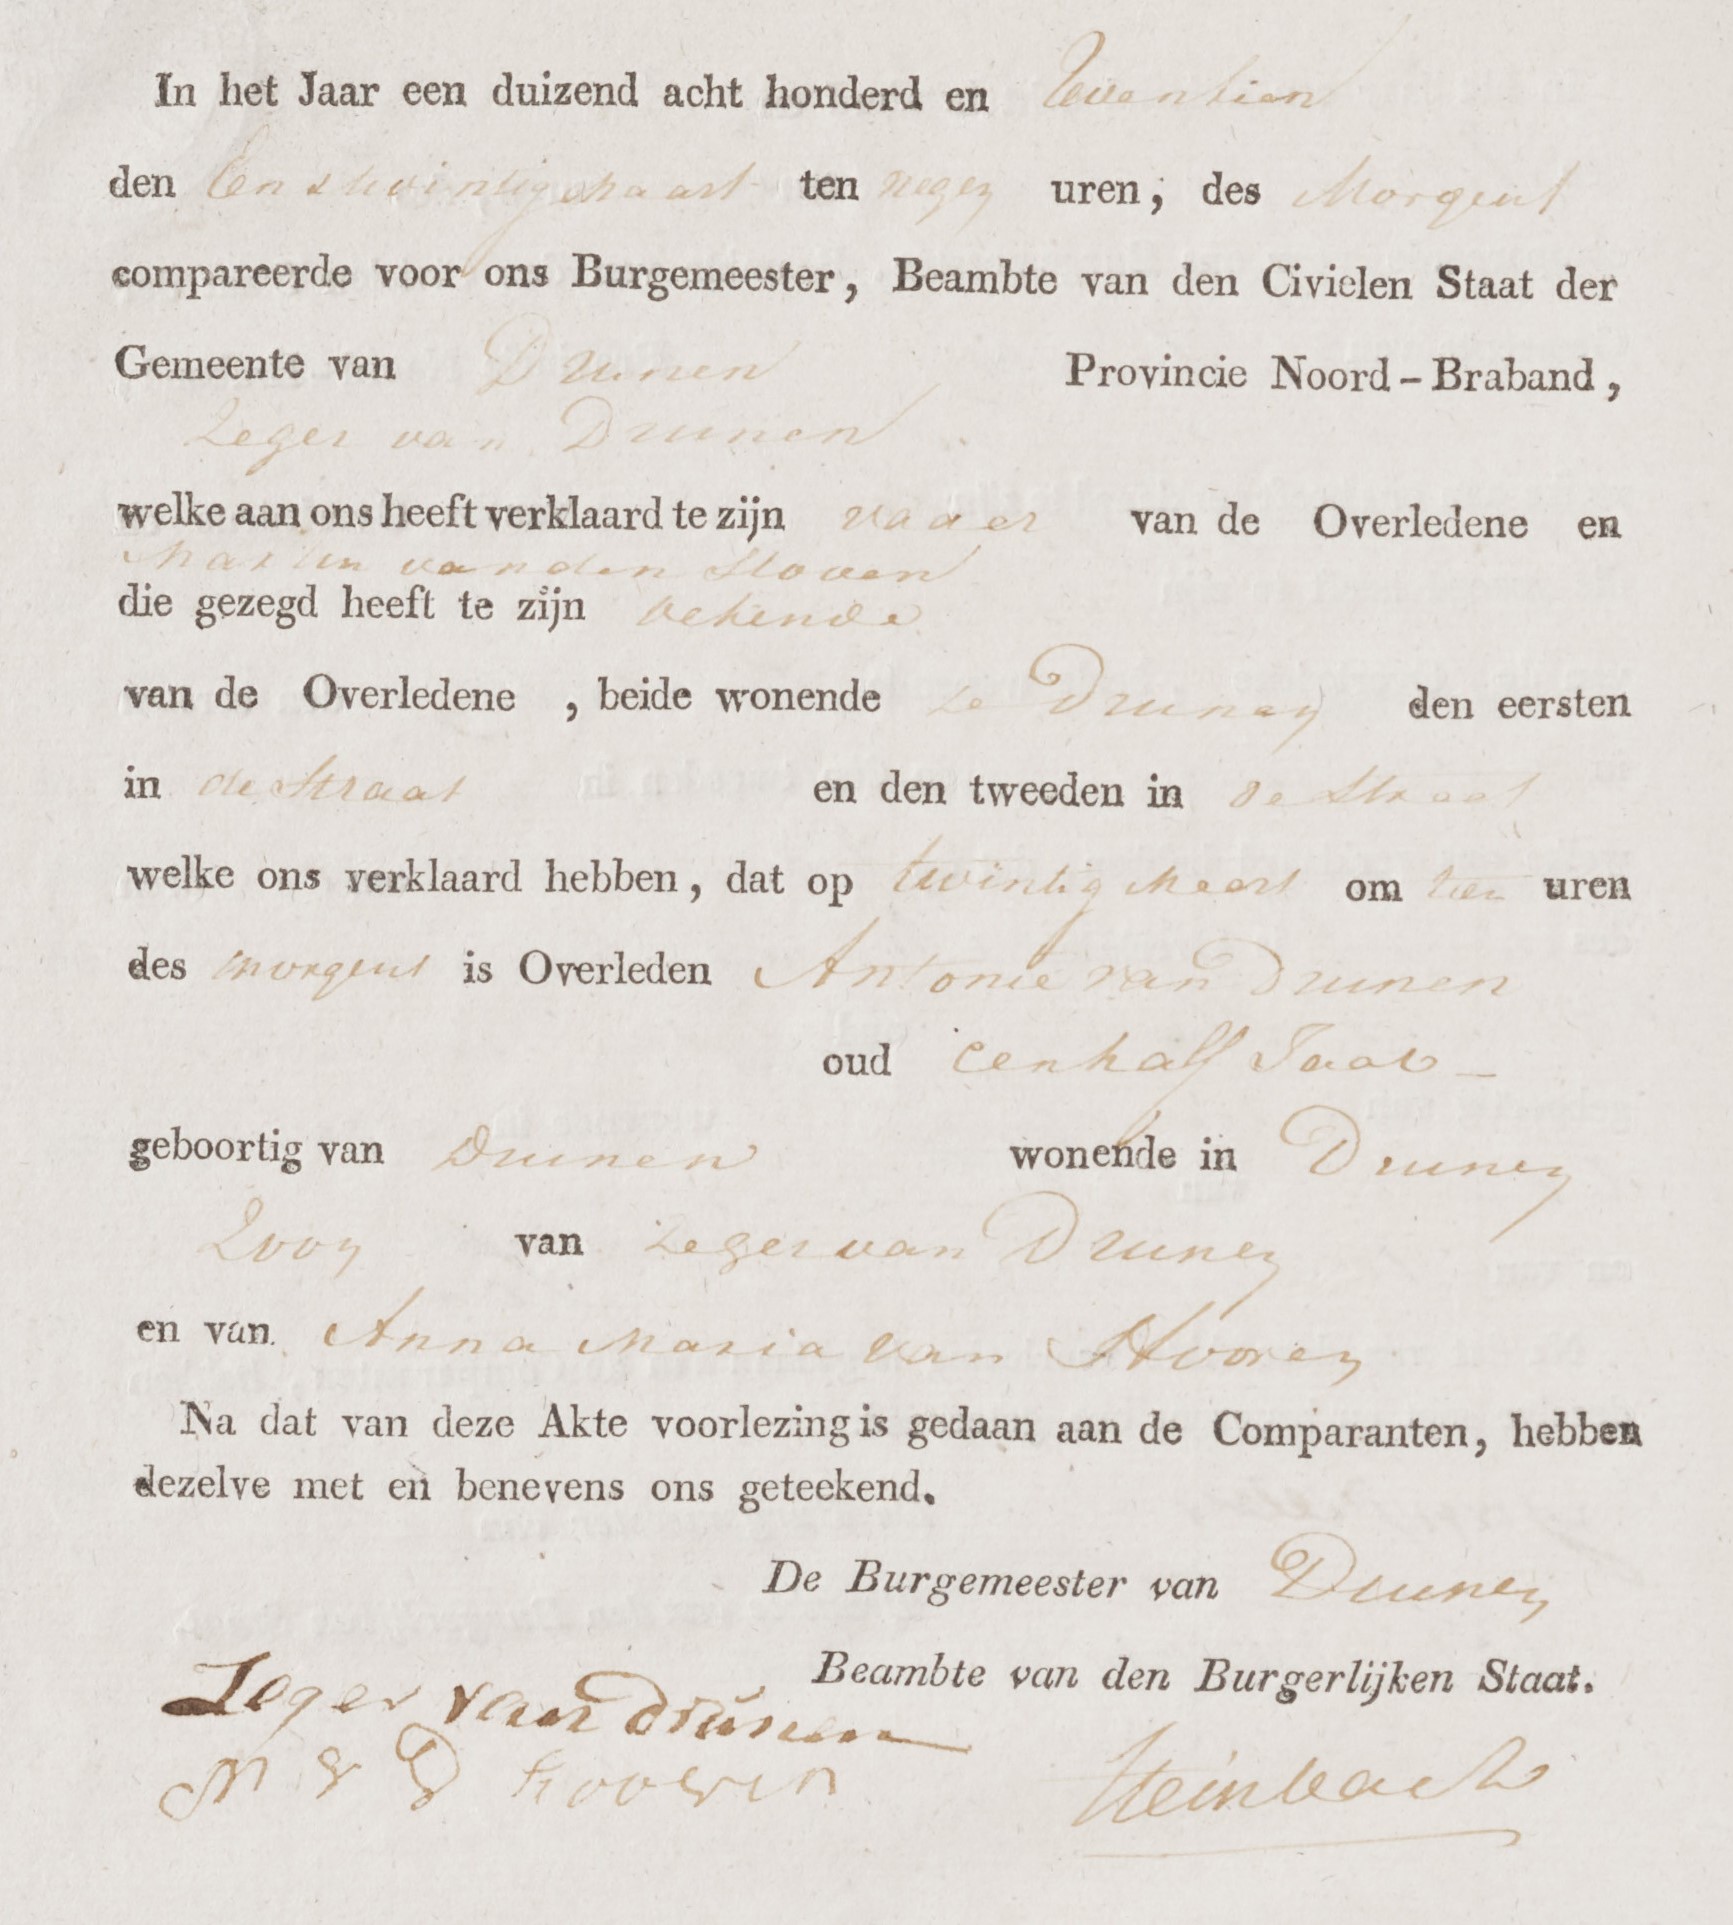 In het Jaar een duizend acht honderd en
den Een twintig Maart ten negen uren, des Morgens
compareerde voor ons Burgemeester, Beambte van den Civielen Staat der
Gemeente van Drunen Provincie Noord-Braband,
Zeger van Drunen
welke aan ons heeft verklaard te zijn vader van de Overledene en
Marten van den Hoven
die gezegd heeft te zijn bekende
van de Overledene, beide wonende te Drunen den eersten
in de Straat en den tweeden in de Straat
welke ons verklaard hebben, dat op twintig Meert om tien uren
des morgens is Overleden Antonie van Drunen
oud een half Jaar
geboortig van Drunen wonende in Drunen
Zoon van Zeger van Drunen
en van Anna Maria van Hooren
Na dat van deze Akte voorlezing is gedaan aan de Comparanten, hebben
dezelve met en benevens ons geteekend.
De Burgemeester van Drunen
Beambte van den Burgerlijken Staat.
Zeger van Drunen
M V D hooven Steinbach